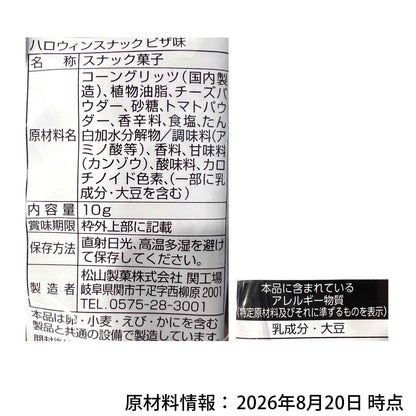 ハロウィンスナックピザ味
名 称 スナック菓子
原材料名 コーングリッツ(国内製
造)、植物油脂、チーズパ
ウダー、砂糖、トマトパウ
ダー、香辛料、食塩、たん
白加水分解物/調味料(ア
ミノ酸等)、香料、甘味料
(カンゾウ)、酸味料、カロ
チノイド色素、(一部に乳
成分・大豆を含む)
内容量 10g
賞味期限 枠外上部に記載
保存方法 直射日光、高温多湿を避け
て保存してください。
製造者 松山製菓株式会社 関工場
岐阜県関市千疋字西柳原2001
TEL.0575-28-3001
本品は卵・小麦・えび・かにを含む
製品と共通の設備で製造しています。
本品に含まれている
アレルギー物質
(特定原材料及びそれに準ずるものを表示)
乳成分・大豆
原材料情報：2026年8月20日 時点